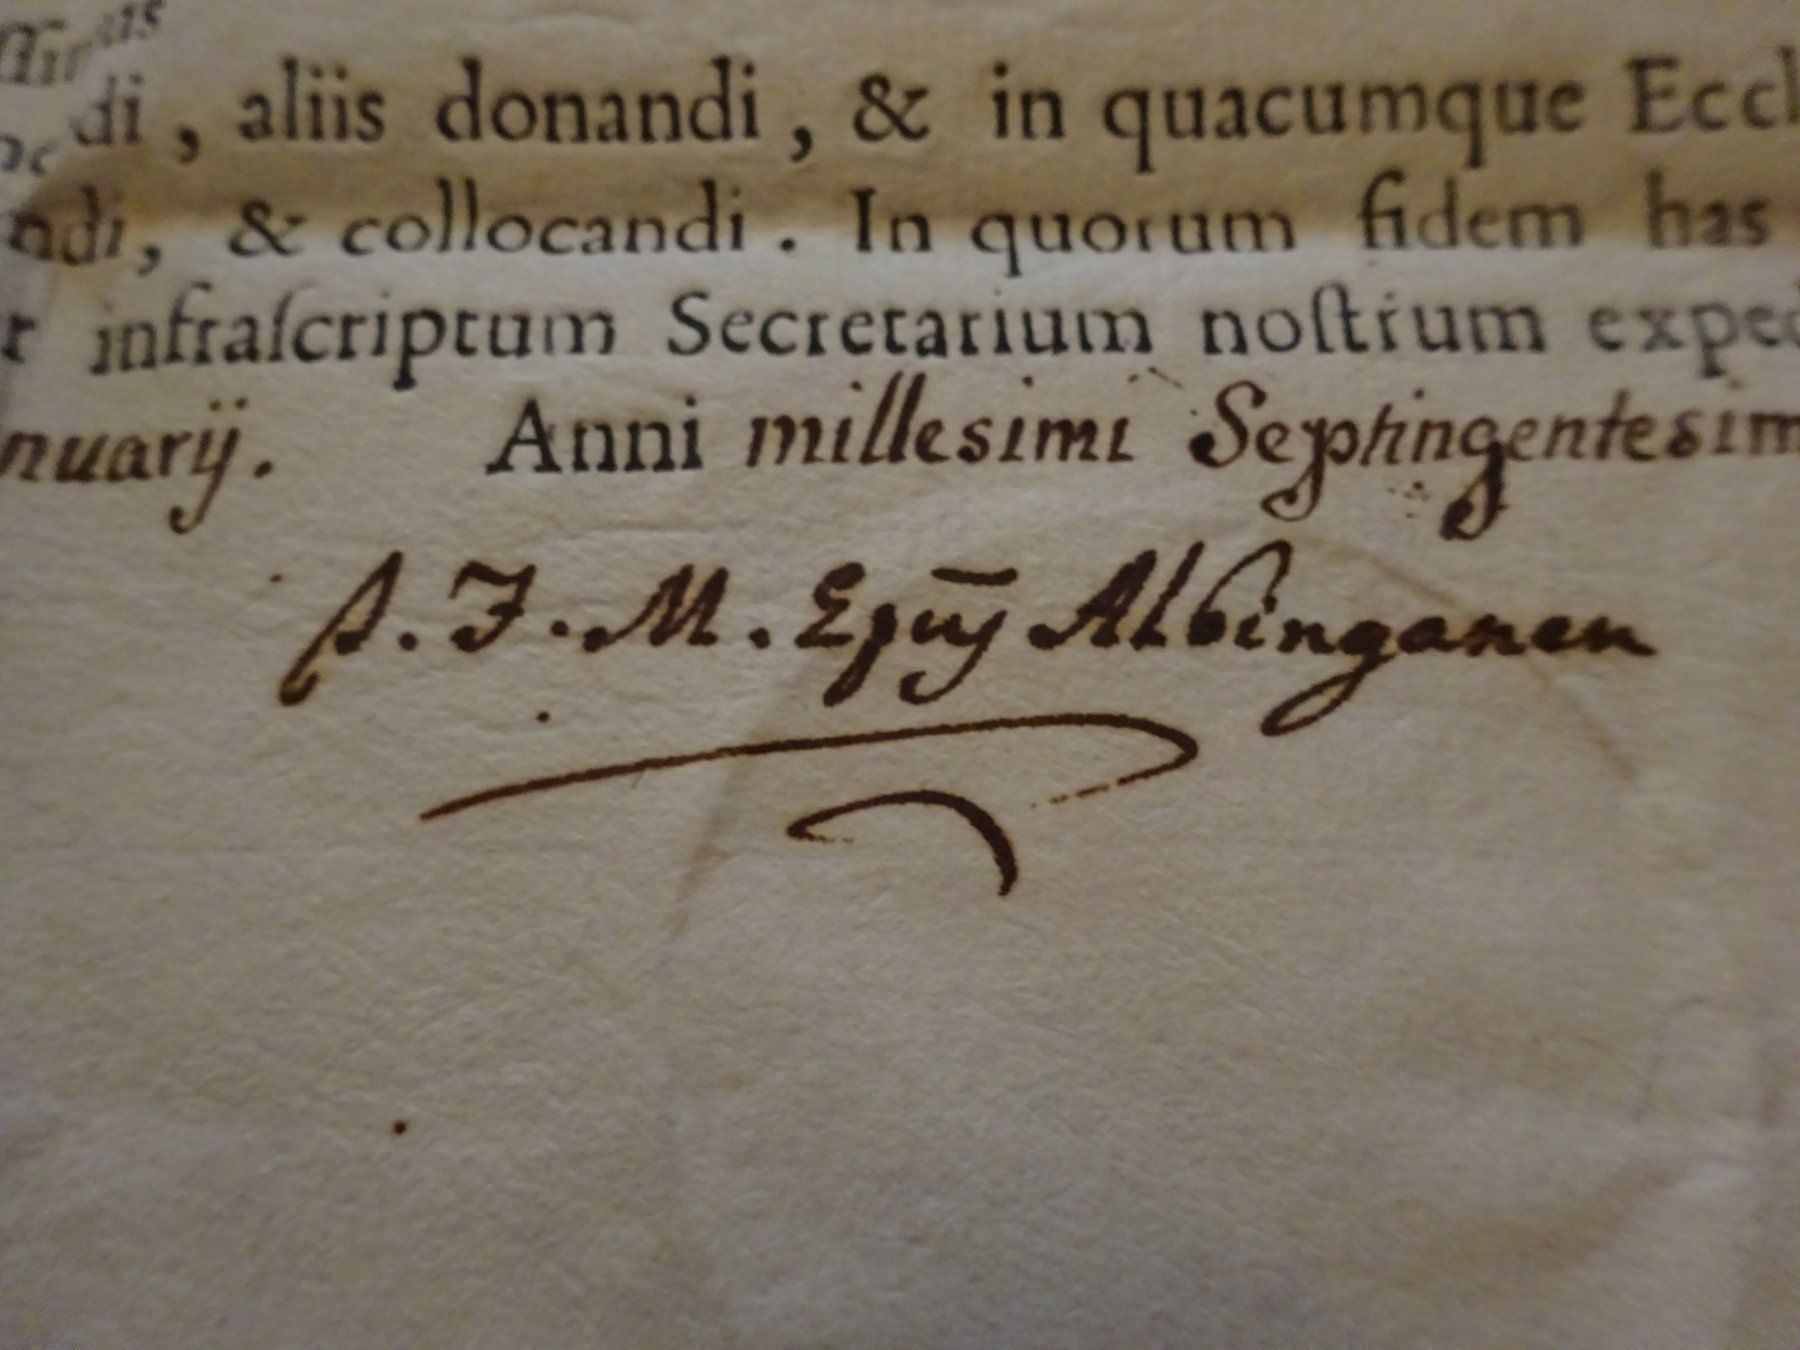 di, aliis donandi, & in quacumque Eccl
ndi, & collocandi. In quorum fidem has
r infraſcriptum Secretarium noſtrum exped
nuarij. Anni millesimi Septingentesim
A. F. M. Epūs Albinganen